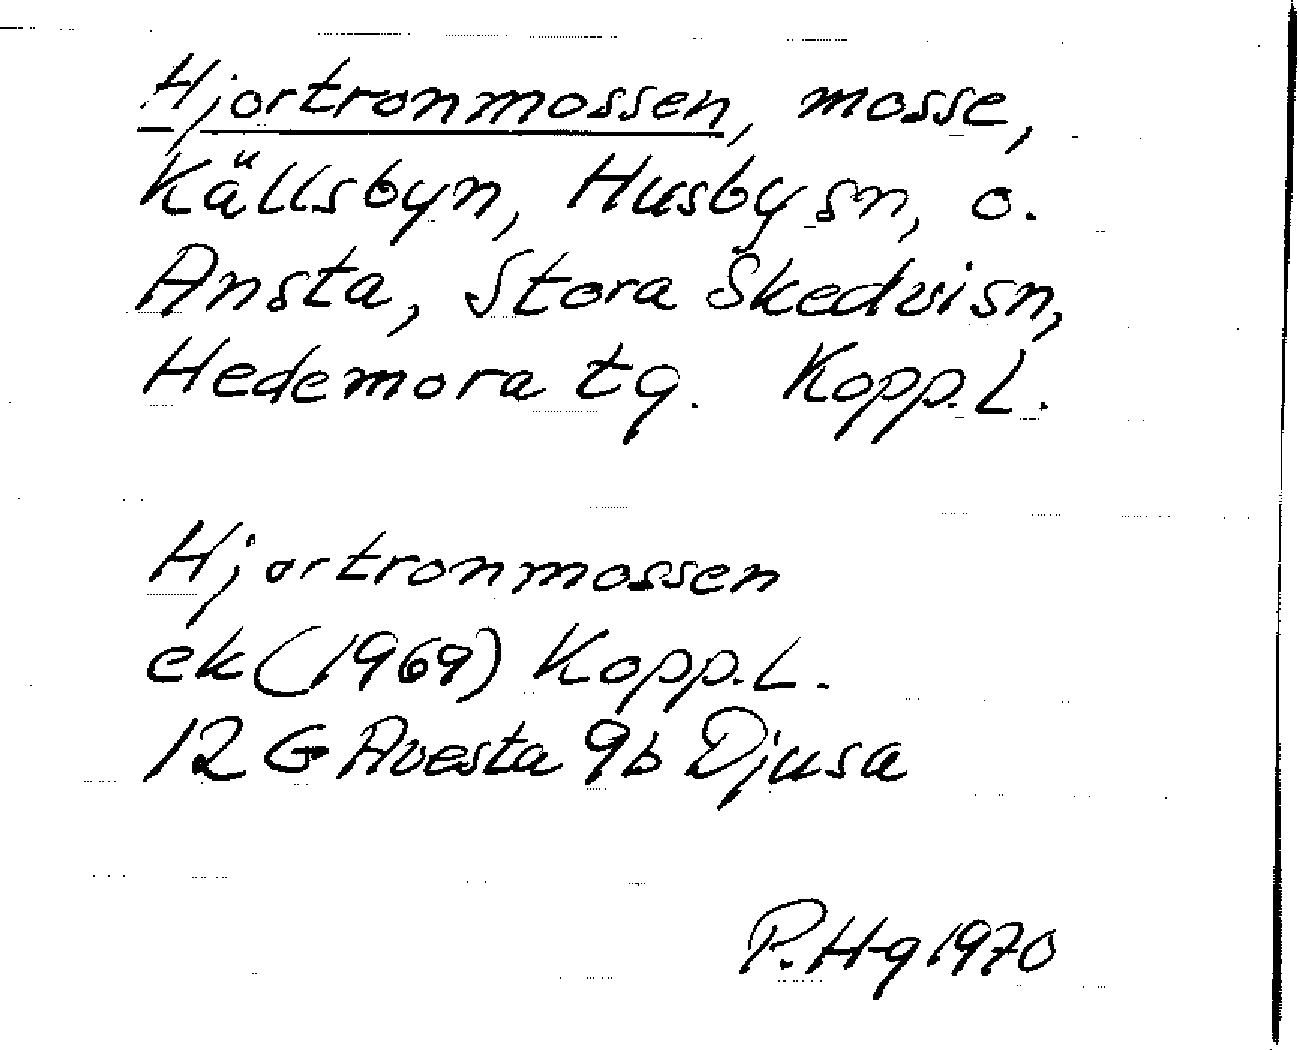 Hjortronmossen, mosse,
Källsbyn, Husby sn, o.
Ansta, Stora Skedvi sn,
Hedemora tg. Kopp.L.
Hjortronmossen
ek (1969) Kopp.L.
12 G Avesta 9b Djusa
P.Hg 1970